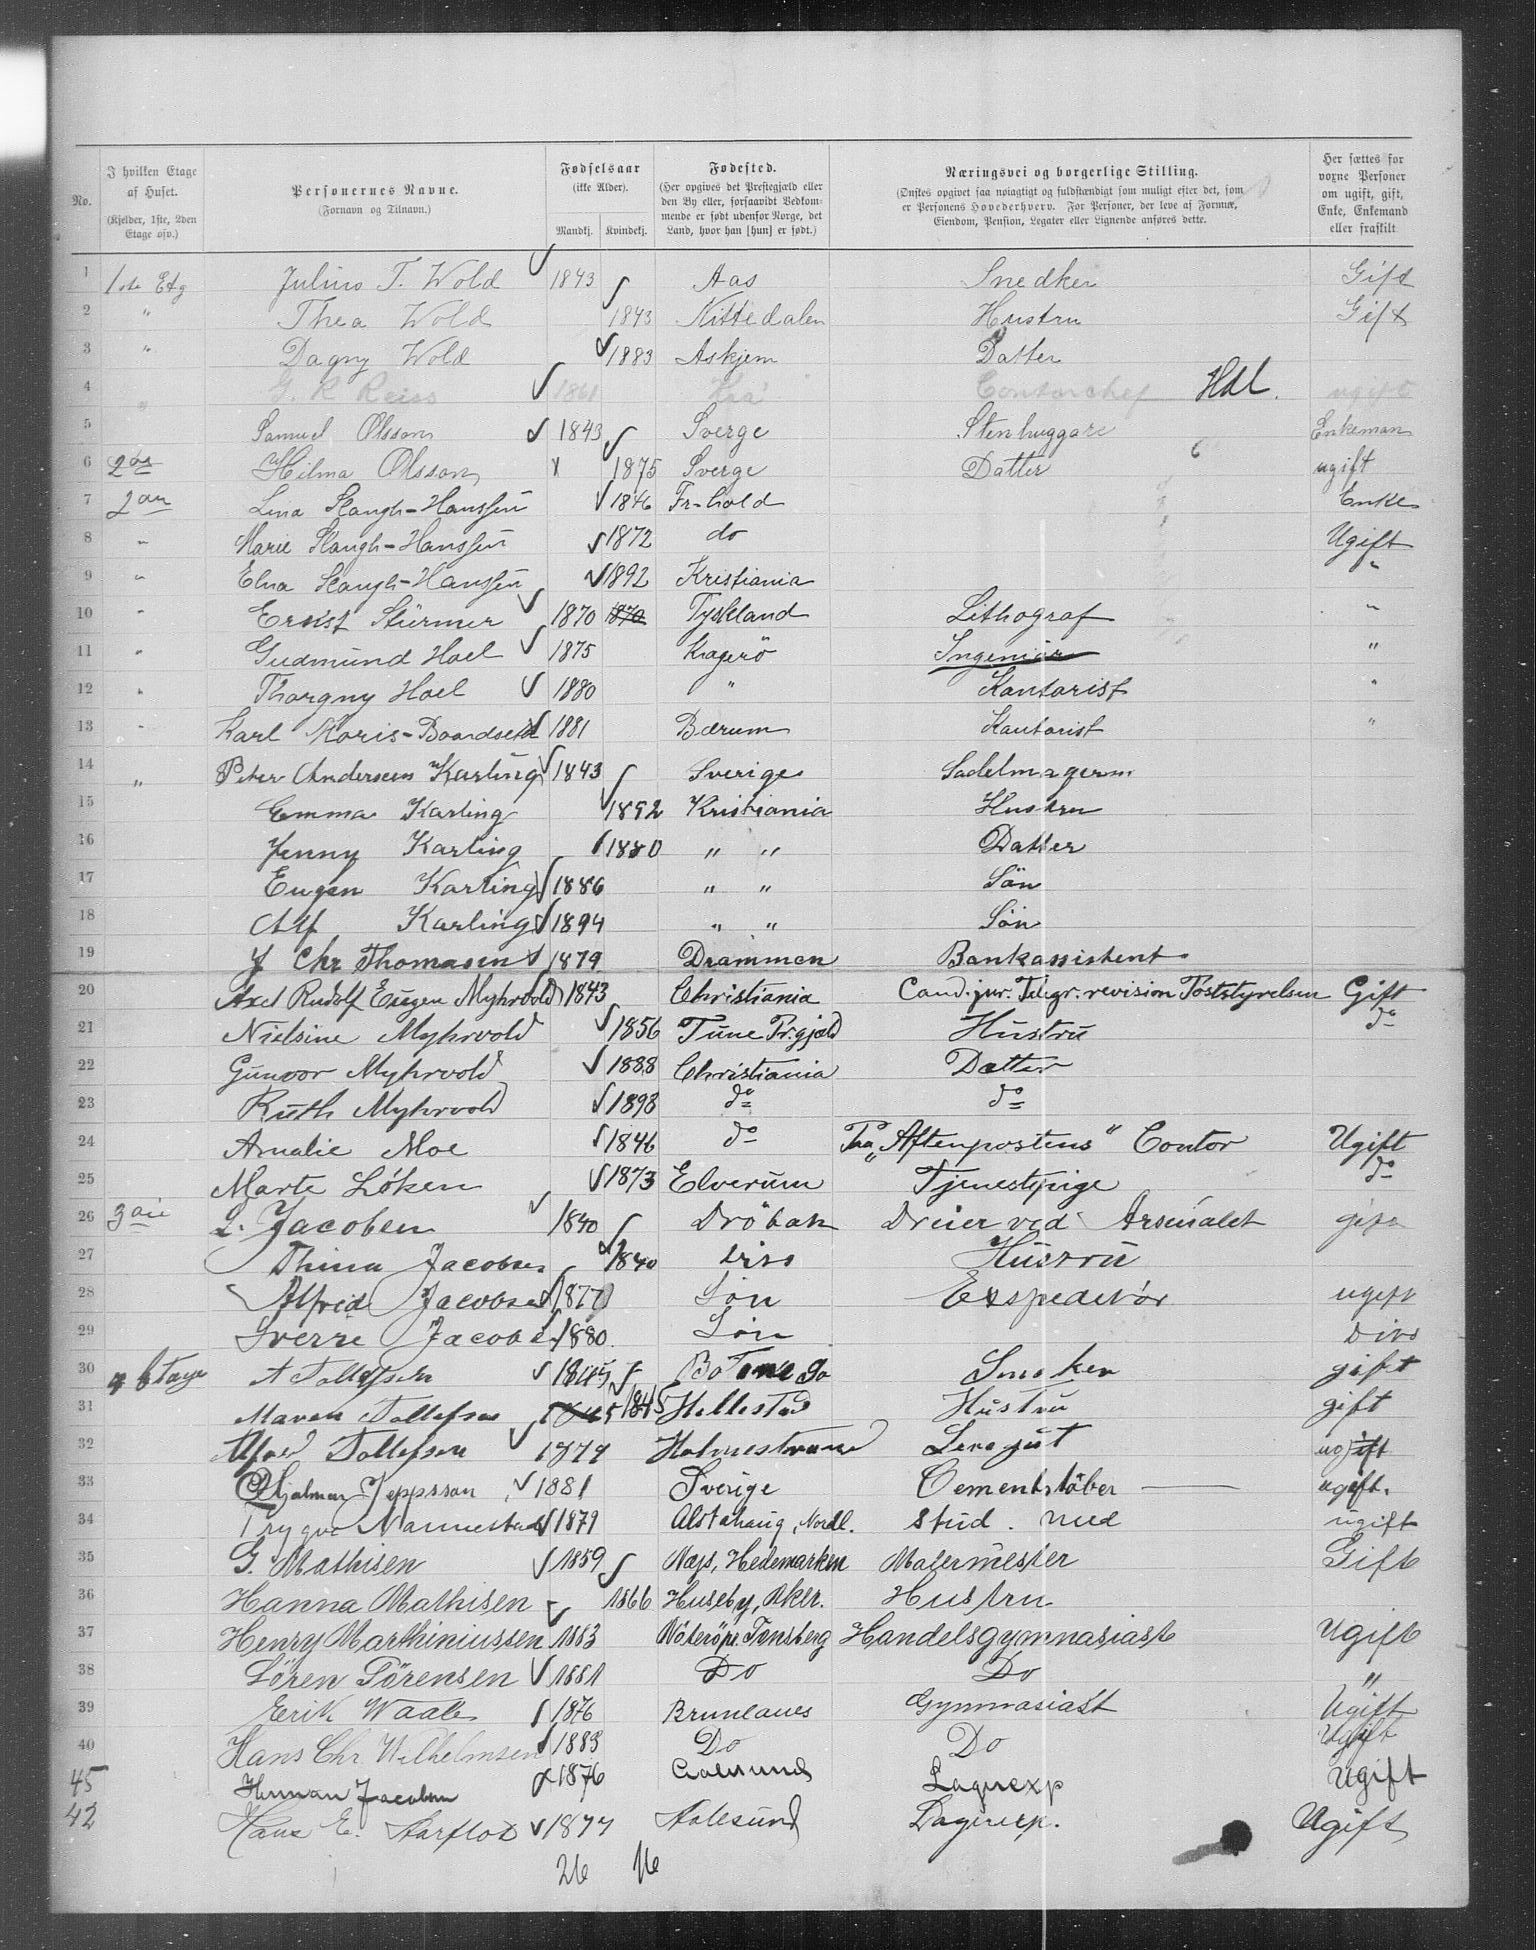 No. | I hvilken Etage af Huset. (Kjelder, 1ste, 2den Etage osv.) | Personernes Navne. (Fornavn og Tilnavn.) | Fødselsaar (ikke Alder). Mandkj. Kvindekj. | Fødested. (Her opgives det Prestegjæld eller den By eller, forsaavidt Vedkommende er født udenfor Norge, det Land, hvor han [hun] er født.) | Næringsvei og borgerlige Stilling. (Ønskes opgivet saa nøiagtigt og fuldstændigt som muligt efter det, som er Personens Hovederhverv. For Personer, der leve af Formue, Eiendom, Pension, Legater eller Lignende anføres dette. | Her sættes for voxne Personer om ugift, gift, Enke, Enkemand eller fraskilt
1 1ste Etg Julius T. Wold 1843 Aas Snedker Gift
2 " Thea Wold 1843 Nittedalen Hustru Gift
3 " Dagny Wold 1883 Askjem Datter
4 " G. R Reiss 1861 Kra Contorchef Hdl. ugift
5 Samuel Olsson 1843 Sverge Stenhuggare Enkeman
6 2den Hilma Olsson x 1875 Sverge Datter ugift
7 2den Lina Haugh-Hanssen 1846 Fr-hald Enke
8 " Marie Haugh-Hanssen 1872 do Ugift
9 " Elna Haugh-Hanssen 1892 Kristiania "
10 " Ernst Stürmer 1870 1870 Tyskland Lithograf "
11 " Gudmund Hoel 1875 Kragerö Ingeniör "
12 " Thorgny Hoel 1880 " Kontorist "
13 " Karl Koris-Baardseth 1881 Bærum Kontorist "
14 " Peter Andersen Karling 1843 Sverige Sadelmagerm
15 Emma Karling 1852 Kristiania Hustru
16 Jenny Karling 1880 " " Datter
17 Eugen Karling 1886 " " Sön
18 Alf Karling 1894 " " Sön
19 J Chr Thomasen 1879 Drammen Bankassistent
20 Axel Rudolf Eugen Myhrvold 1843 Christiania Cand. jur. Telegr. revision Poststyrelsen Gift
21 Nielsine Myhrvold 1856 Tune Pr.gjæld Hustru do
22 Gunvor Myhrvold 1888 Christiania Datter
23 Ruth Myhrvold 1898 do do
24 Amalie Moe 1846 do Paa "Aftenpostens" Contor Ugift
25 Marte Löken 1873 Elverum Tjenestpige do
26 3die L. Jacobsen 1840 Dröbak Dreier ved Arsenalet gift
27 Thina Jacobsen 1840 Diso Hustru
28 Alfred Jacobsen 1877 Sön Expeditör ugift
29 Sverre Jacobsen 1880 Sön Diso
30 4 Etage A Tollefsen 1845 Botne Smeker gift
31 Maren Tollefsen 1845 1845 Hillestad Hustru gift
32 Alfred Tollefsen 1879 Holmestrand ugift
33 Hjalmar Jeppsson 1881 Sverige Cementstöber ugift.
34 Trygve Nannestad 1879 Alstahaug, Nordl. stud. med ugift
35 G. Mathisen 1859 Næs, Hedemarken Malermester Gift
36 Hanna Mathisen 1866 Huseby, Aker. Hustru
37 Henry Marthiniussen 1883 Nöterö pr. Tønsberg Handelsgymnasiast Ugift
38 Sören Sörensen 1881 Do Do "
39 Erik Waale 1876 Brunlanes Gymnasiast Ugift
40 Hans Chr. Wilhelmsen 1883 Do Do Ugift
45 Herman Jacobsen 1876 Aalesund Lagerexp Ugift
42 Hans E. Aarflot 1877 Aalesund Lagerexp. Ugift
26 16